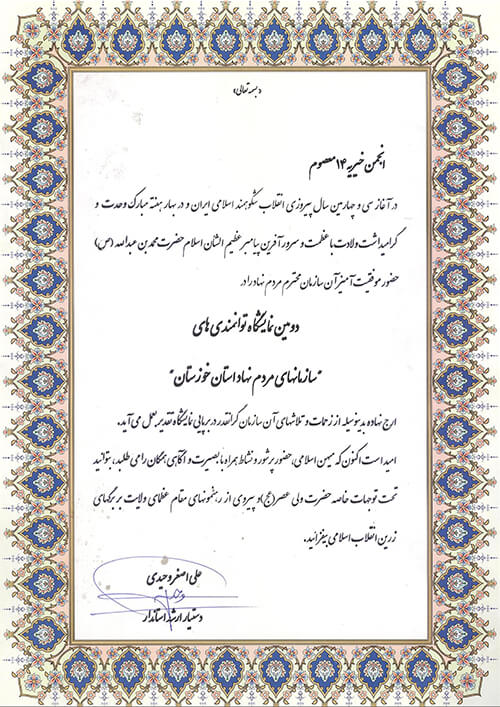 «بسمه تعالی»
انجمن خیریه ۱۴ معصوم
در آغاز سی و چهارمین سال پیروزی انقلاب شکوهمند اسلامی ایران و در بهار هفته مبارک وحدت و
گرامیداشت ولادت با عظمت و سرور آفرین پیامبر عظیم الشان اسلام حضرت محمد بن عبدالله (ص)
حضور موفقیت آمیز آن سازمان محترم مردم نهاد را در
دومین نمایشگاه توانمندی های
"سازمانهای مردم نهاد استان خوزستان"
ارج نهاده بدینوسیله از زحمات و تلاشهای آن سازمان گرانقدر در برپایی نمایشگاه تقدیر بعمل می آید.
امید است اکنون که میهن اسلامی، حضور پرشور و نشاط همراه با بصیرت و آگاهی همگان را می طلبد، بتوانید
تحت توجهات خاصه حضرت ولی عصر (عج) و پیروی از رهنمونهای مقام عظمای ولایت بر برگهای
زرین انقلاب اسلامی بیفزائید.
علی اصغر وحیدی
دستیار ارشد استاندار